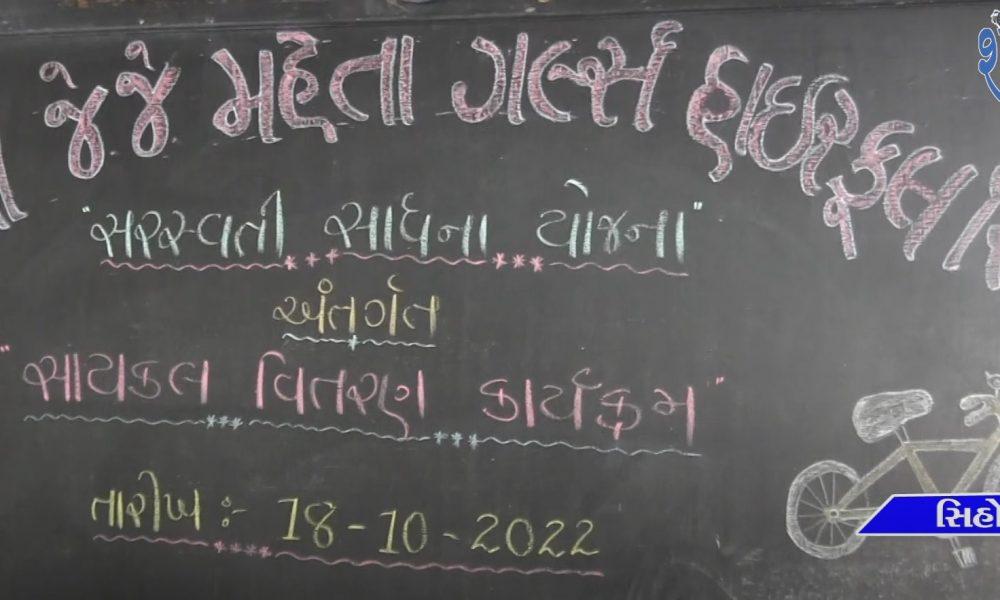 જે જે મહેતા ગર્લ્સ હાઇસ્કુલ
"સરસ્વતી સાધના યોજના"
અંતર્ગત
"સાયકલ વિતરણ કાર્યક્રમ"
તારીખ :- 18-10-2022
સિહો